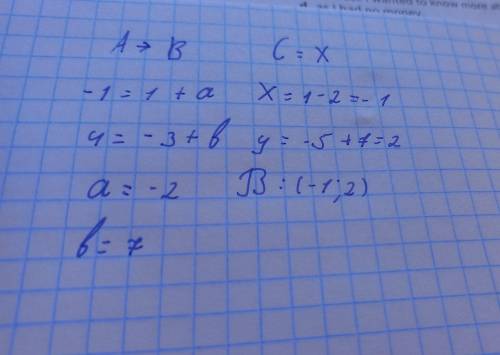 wanted to know more
as I had no money
A → B
C = X
-1 = 1 + a
X = 1 - 2 = - 1
4 = - 3 + b
y = -5 + 7 = 2
a = -2
B : (-1; 2)
b = 7